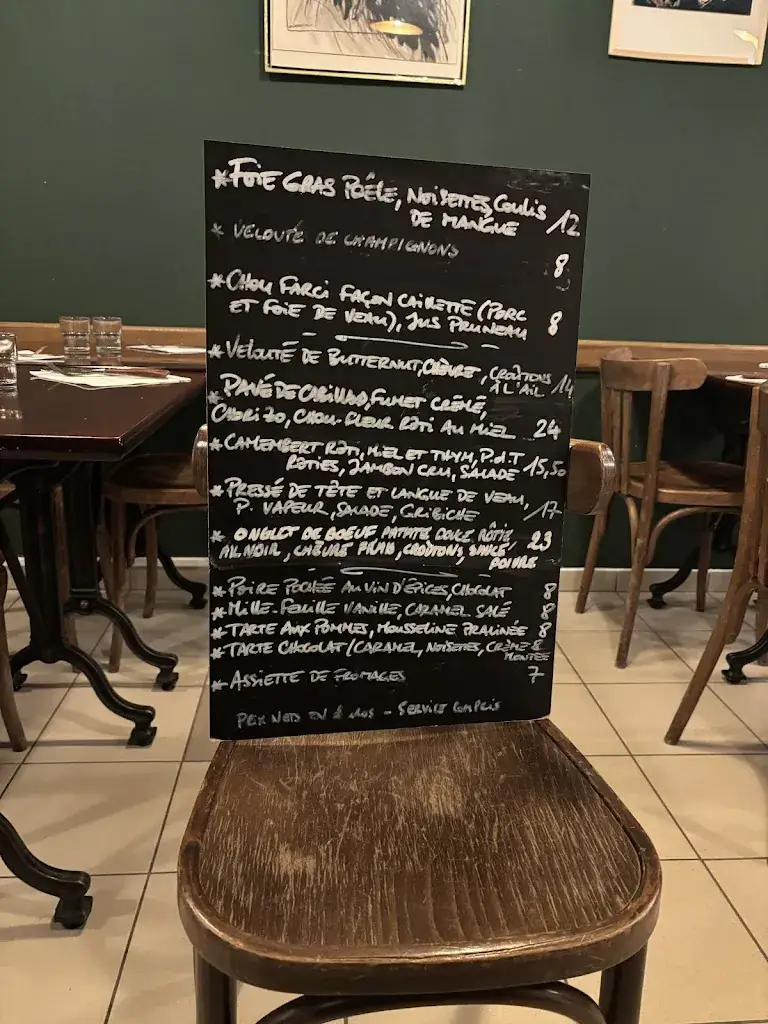 *FOIE GRAS POÊLÉ, NOISETTES, COULIS
DE MANGUE 12
* VELOUTÉ DE CHAMPIGNONS
8
*CHOU FARCI FAÇON CAILLETTE (PORC
ET FOIE DE VEAU), JUS PRUNEAU 8
*VELOUTÉ DE BUTTERNUT, CHÈVRE, CROÛTONS
À L'AIL 14
*PAVÉ DE CABILLAUD, FUMET CRÉMÉ,
CHORIZO, CHOU-FLEUR RÔTI AU MIEL 24
*CAMEMBERT RÔTI, MIEL ET THYM, P.d.T
RÔTIES, JAMBON CRU, SALADE 15,50
*PRESSÉ DE TÊTE ET LANGUE DE VEAU,
P. VAPEUR, SALADE, GRIBICHE 17
* ONGLET DE BOEUF, PATATE DOUCE RÔTIE, 23
AIL NOIR, CHÈVRE FRAIS, CROÛTONS, SAUCE
POIVRE
*POIRE POCHÉE AU VIN D'ÉPICES, CHOCOLAT 8
*MILLE-FEUILLE VANILLE, CARAMEL SALÉ 8
*TARTE AUX POMMES, MOUSSELINE PRALINÉE 8
*TARTE CHOCOLAT/CARAMEL, NOISETTES, CRÈME 8
MONTÉE
*ASSIETTE DE FROMAGES 7
PRIX NETS EN € - SERVICE COMPRIS